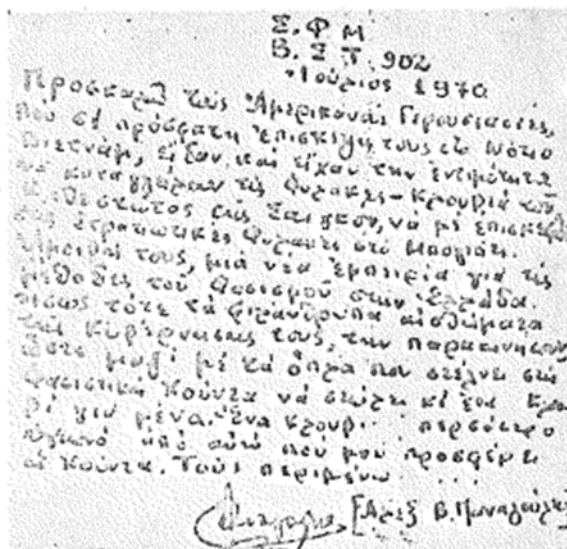 Σ. Φ Μ
Β. Σ Τ. 902
Ἰούλιος 1970
Προσκαλῶ τούς Ἀμερικανούς Γερουσιαστές,
πού σέ πρόσφατη ἐπίσκεψή τους στό Νότιο
Βιετνάμ, εἶδαν καί εἶχαν τήν ἐντιμότητα
νά καταγγείλουν τίς Φυλακές-Κλουβιά τοῦ
τῆς Σαϊγκόν, νά μέ
στίς Στρατιωτικές Φυλακές στό Μπογιάτι.
τους, μιά νέα ἐμπειρία γιά τίς
μέθοδες τοῦ Φασισμοῦ στήν Ἑλλάδα.
Ἴσως τότε τά φιλάνθρωπα αἰσθήματα
τῆς Κυβέρνησής τους, τήν παρακινήσουν
ὥστε μαζί μέ τά ὅπλα πού στέλνει στή
Φασιστική Χούντα νά στείλει κι ἕνα Κλου-
βί γιά μένα. Ἕνα κλουβί περσότερο
ἀπό αὐτό πού μοῦ προσφέρει
ἡ Χούντα. Τούς περιμένω ...
[Αλεξ Β. Παναγούλης]